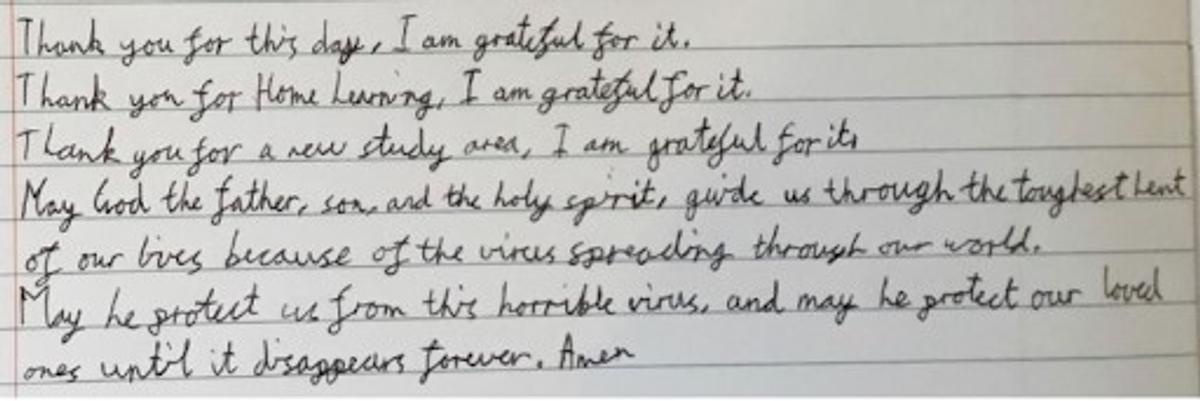 Thank you for this day, I am grateful for it.
Thank you for Home Learning, I am grateful for it.
Thank you for a new study area, I am grateful for it.
May God the father, son, and the holy spirit, guide us through the toughest Lent
of our lives because of the virus spreading through our world.
May he protect us from this horrible virus, and may he protect our loved
ones until it disappears forever. Amen